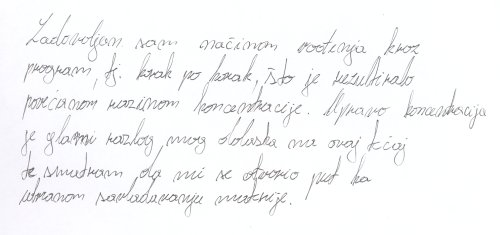 Zadovoljan sam načinom vođenja kroz
program, tj. korak po korak, što je rezultiralo
povećanom razinom koncentracije. Upravo koncentracija
je glavni razlog mog dolaska na ovaj tečaj
te smatram da mi se otvorio put ka
ubrzanom savladavanju materije.